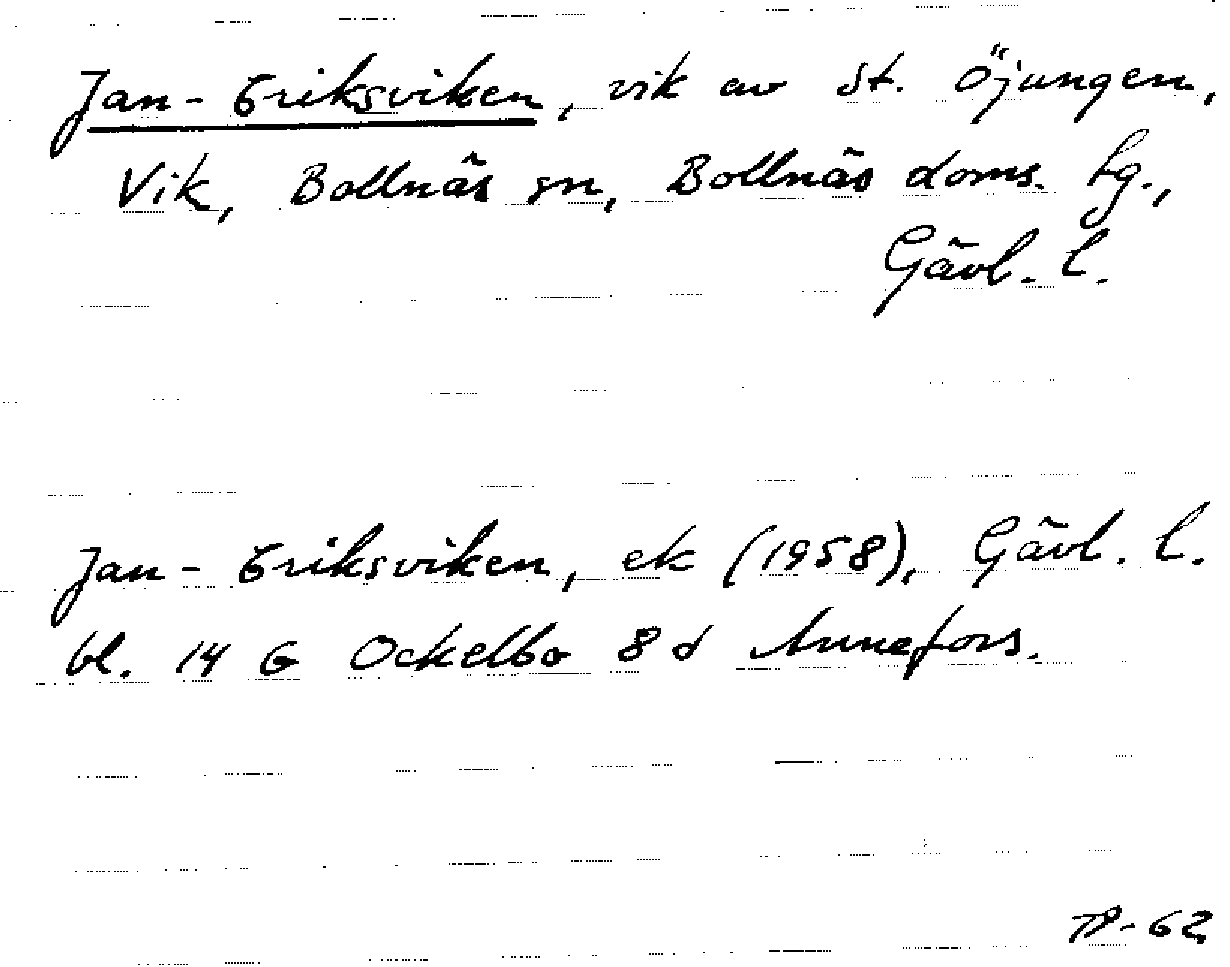 Jan-Eriksviken, vik av St. Öjungen,
Vik, Bollnäs sn, Bollnäs doms. tg.,
Gävl. l.
Jan-Eriksviken, ek (1958), Gävl. l.
bl. 14 G Ockelbo 8 d Annefors.
-62